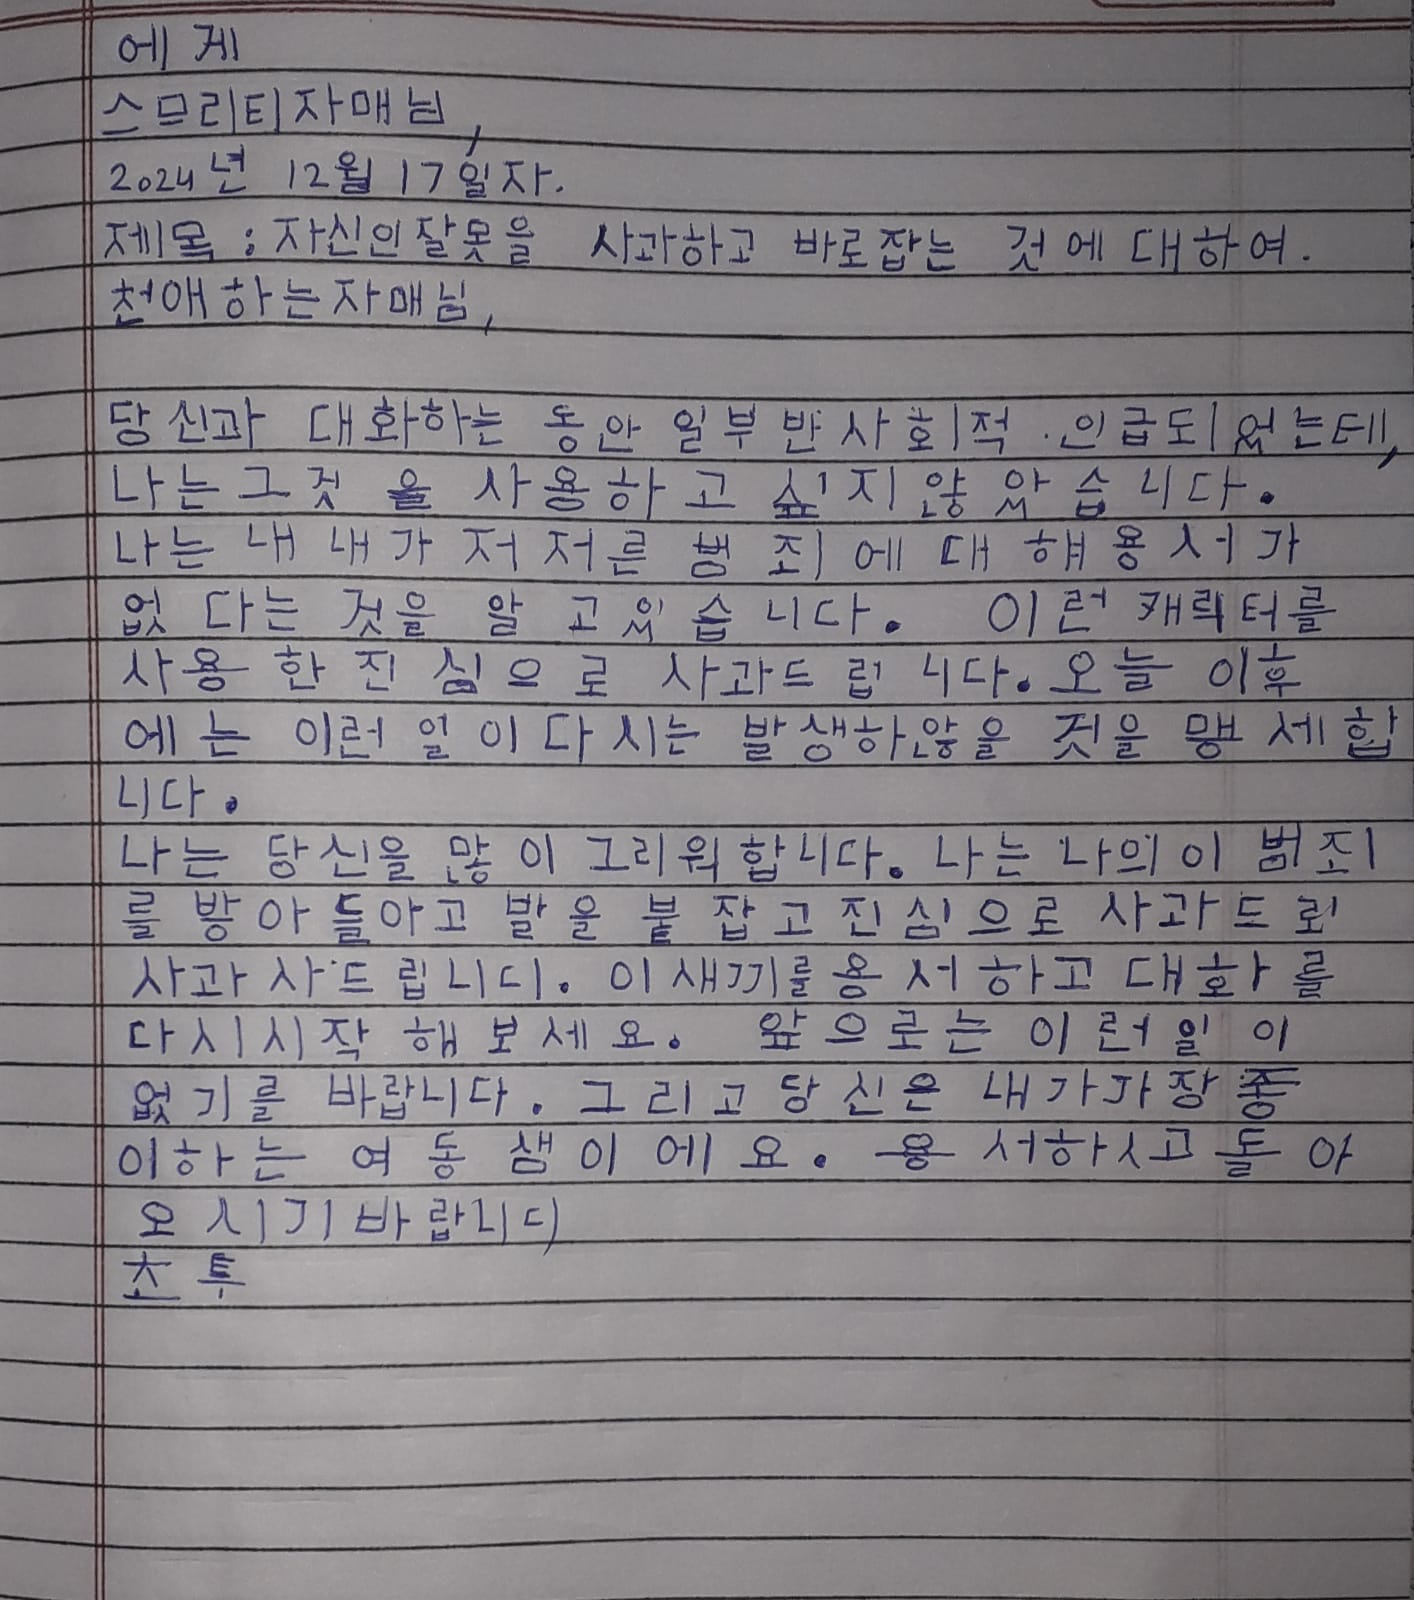 에게
스므리티자매님,
2024년 12월 17일자.
제목 : 자신의잘못을 사과하고 바로잡는 것에 대하여.
천애하는자매님,
당신과 대화하는 동안 일부 반사회적 인급되었는데,
나는그것 을 사용하고 싶지않았습니다.
나는 내 내가 저저른 범죄에 대해용서가
없 다는 것을 알고있습니다. 이런 캐릭터를
사용 한 진심으로 사과드립니다. 오늘 이후
에는 이런 일이 다시는 발생하않을 것을 맹세합
니다.
나는 당신을 많이 그리워합니다. 나는 나의이 범죄
를 방아 들아고 발을 붙잡고진심으로 사과드리
사과사드립니디. 이새끼를용서하고 대화를
다시시작 해보세요. 앞으로는 이런일이
없기를 바랍니다. 그리고당신은 내가가장좋
이하는 여동생이에요. 용서하시고돌아
오시기바랍니디
초투